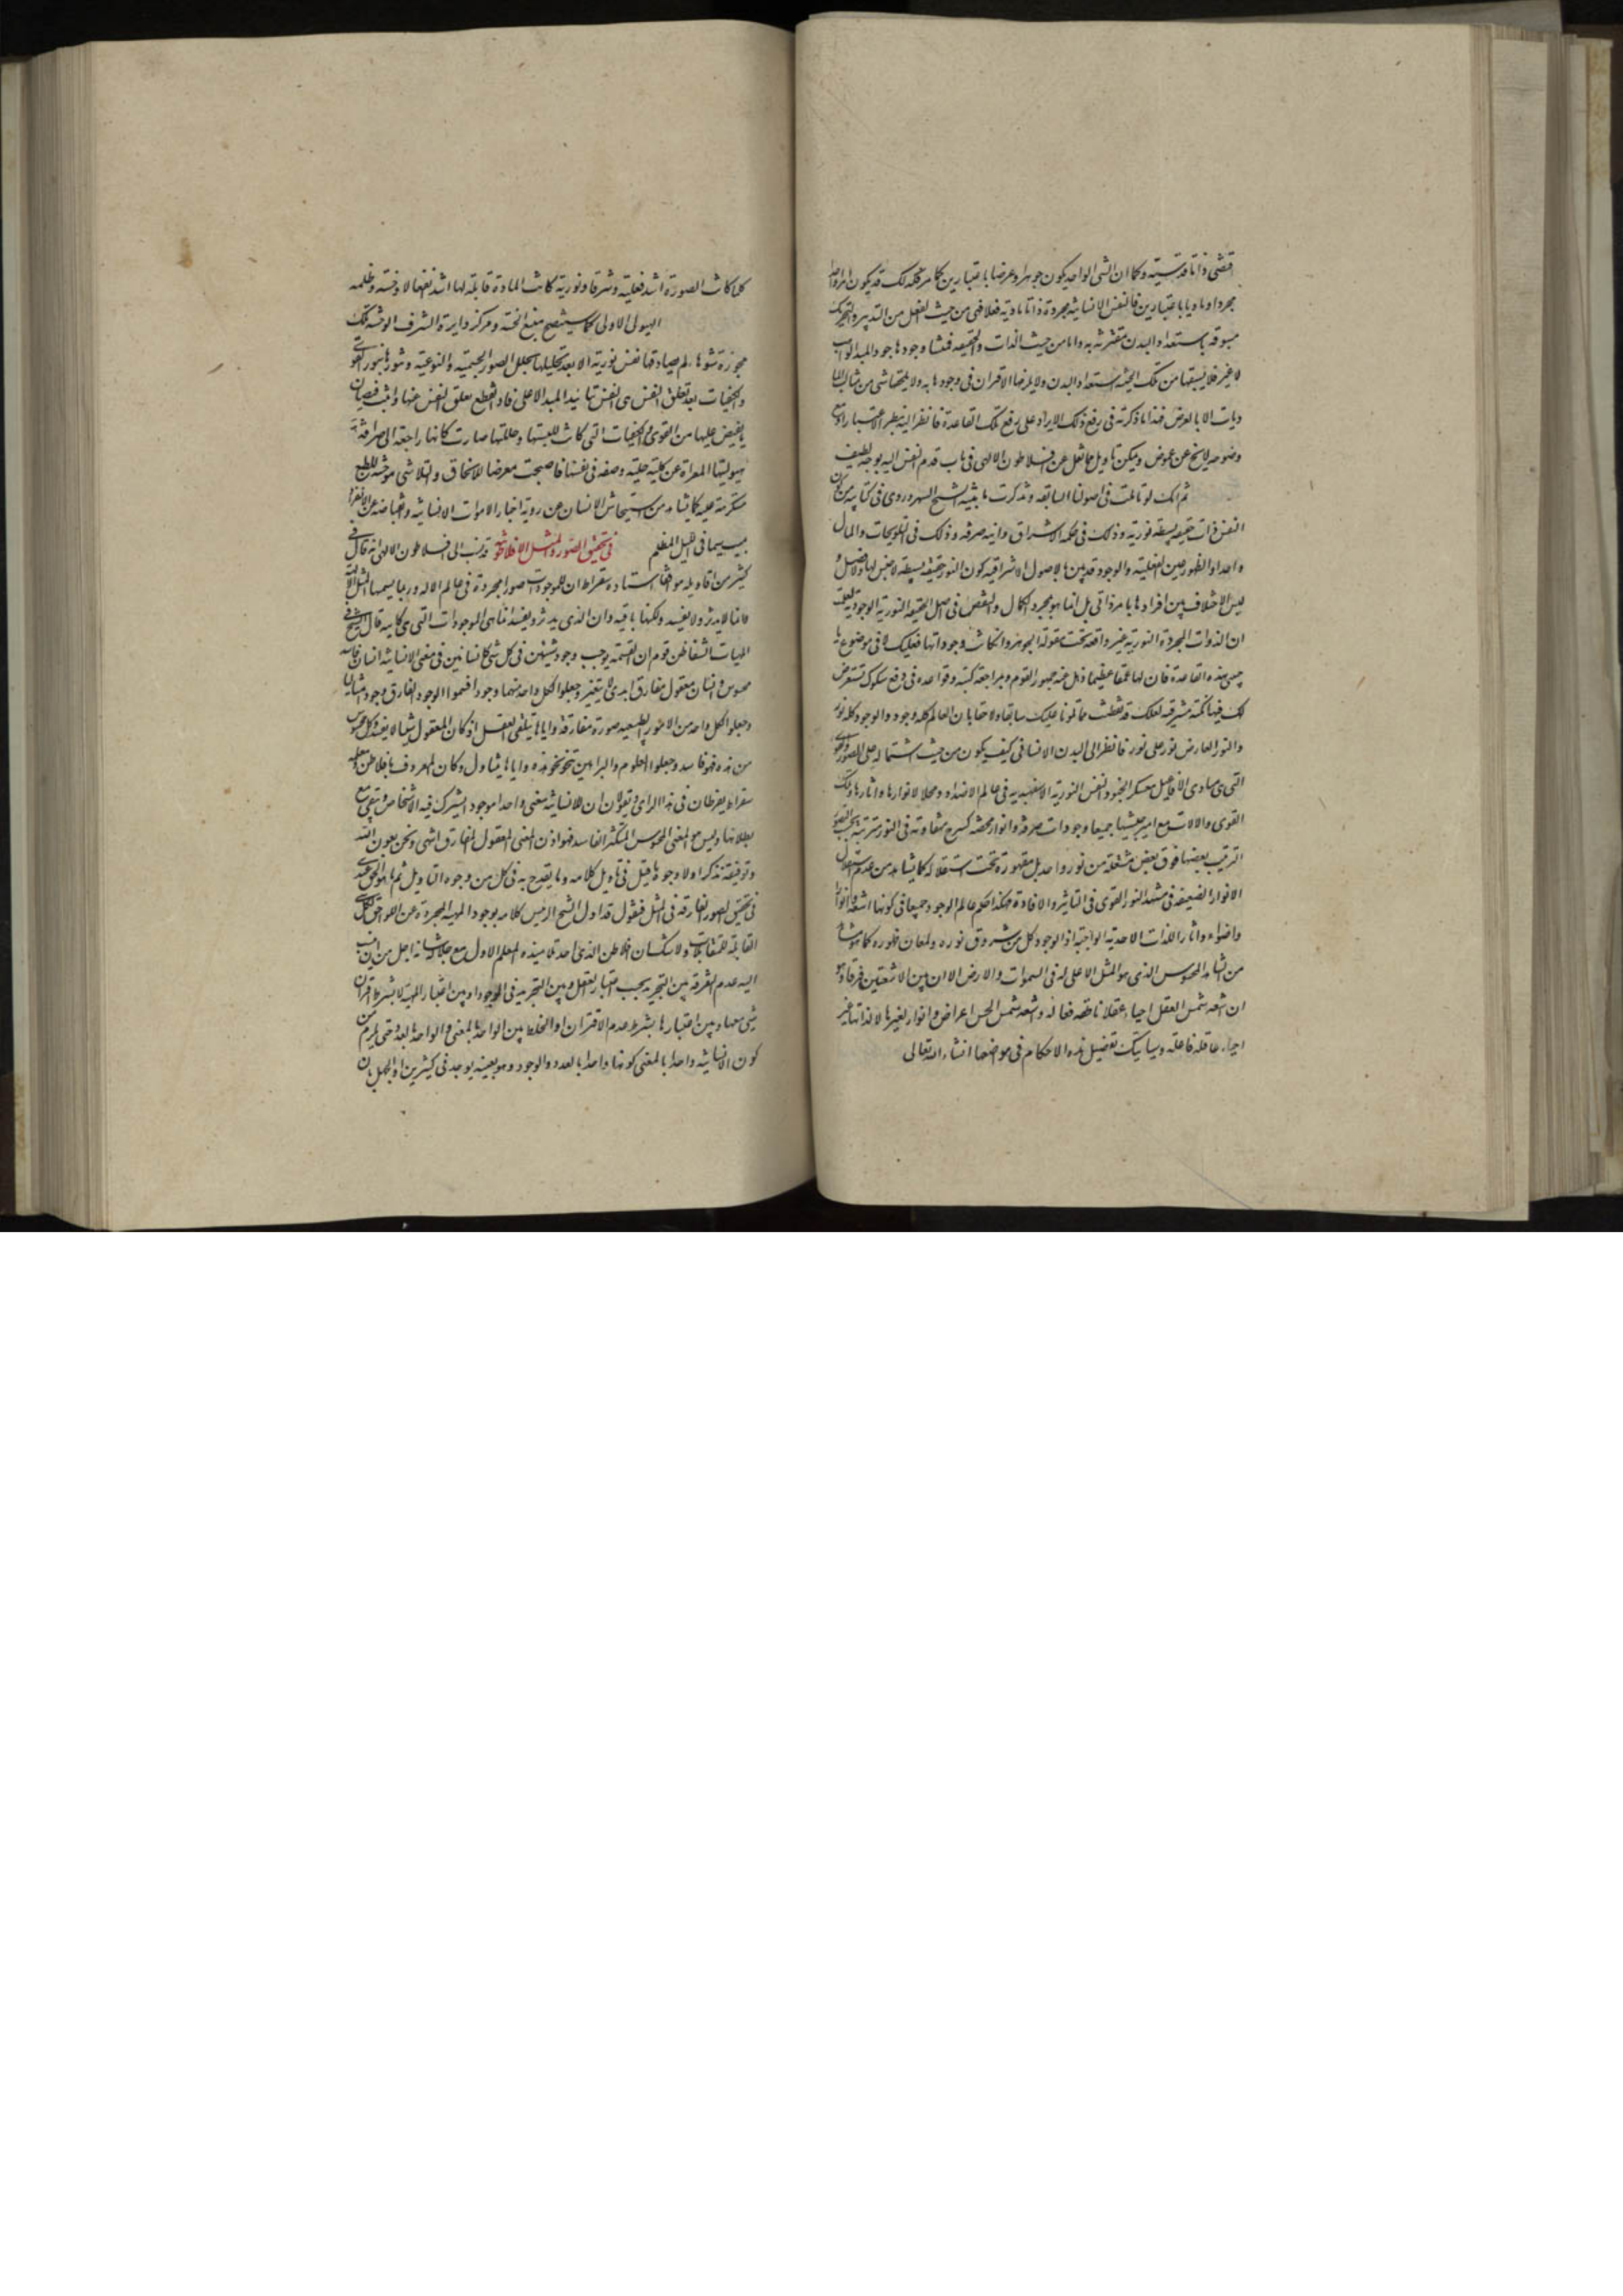 اقتضى ذاتا قدسية وكما ان الشى الواحد يكون جوهرا وعرضا باعتبارين كما مر فكذلك قد يكون امر واحد
مجردا وماديا باعتبارين فالنفس الانسانية مجردة ذاتا مادية فعلا فهى من حيث الفعل من التدبير والتحريك
مسبوقة باستعداد البدن مقترنة به واما من حيث الذات والحقيقة فمنشا وجودها جود المبدا الواهب
لا غير فلا يسبقها من تلك الحيثية استعداد البدن ولا يلزمها الاقتران فى وجودها به ولا يلحقها شى من مثالب الما
ديات الا بالعرض فهذا ما ذكرته فى رفع ذلك الايراد على رفع تلك القاعدة فانظر اليه بنظر الاعتبار اذ مع
وضوحه لا يخ عن غموض ويمكن تاويل ما نقل عن افلاطون الالهى فى باب قدم النفس اليه بوجه لطيف
ثم انك لو تاملت فى اصولنا السابقة وتذكرت ما بينه الشيخ السهروردى فى كتابيه من كون
النفس ذات حقيقة بسيطة نورية وذلك فى حكمة الاشراق وانية صرفة وذلك فى التلويحات والمال
واحد اذ الظهور عين الفعلية والوجود قد بين بالاصول الاشراقية كون النور حقيقة بسيطة لا جنس لها ولا فصل و
ليس الاختلاف بين افرادها بامر ذاتى بل انما هو بمجرد الكمال والنقص فى اصل الحقيقة النورية الوجودية لعلمت
ان الذوات المجردة النورية غير واقعة تحت مقولة الجوهر وان كانت وجوداتها لا فى موضوع فعليك
بهذه القاعدة فان لها عمقا عظيما ذهل عنه جمهور القوم وبمراجعة كتبه وقواعده فى دفع شكوك تستعرض
لك فيها نكتة مشرقية لعلك قد تفطنت مما تلونا عليك سابقا ولاحقا بان العالم كله وجود والوجود كله نور
والنور العارض نور على نور فانظر الى البدن الانسانى كيف يكون من حيث اشتماله على الصور والقوى
التى هى مبادى الافاعيل معسكر الجنود النفس النورية الاسفهبدية فى عالم الاضداد ومحلا لانوارها واثارها وتلك
القوى والالات مع اميرجيشها جميعا وجودات صرفة وانوار محضة كسرج متفاوتة فى النور مترتبة بحسب التصور
الترتيب بعضها فوق بعض مشتعلة من نور واحد بل مقهورة تحت استقلاله كما يشاهد من عدم استقلال
الانوار الضعيفة فى مشهد النور القوى فى التاثير والافادة فهكذا حكم عالم الوجود جميعا فى كونها اشعة وانوارا
واضواء واثارا للذات الاحدية الواجبية اذ الوجود كله من شروق نوره ولمعان ظهوره كما هو شان
من الشاهد المحسوس الذى هو المثل الاعلى له فى السموات والارض الا ان بين الاشعتين فرقا وهو
ان اشعة شمس العقل احياء عقلاء ناطقة فعالة واشعة شمس الحس اعراض وانوار لغيرها لا لذاتها غير
احياء عاقلة فاعلة وسياتيك تفصيل هذه الاحكام فى مواضعها انشاء الله تعالى
كلما كانت الصورة اشد فعلية وشرفا ونورية كانت المادة قابلة لها اشد نقصا وخسة وظلمة
الهيولى الاولى كما سيتضح منبع الخسة ومركز دايرة الشرف
لم يصادفها نفس نورية الا بعد تجليلها بجلل الصور الجسمية والنوعية وتنورها بنور القوى
والكيفيات بعد تعلق النفس هى النفس بتاييد المبدا الاعلى فاذا انقطع تعلق النفس عنها
ما يفيض عليها من القوى والكيفيات التى كانت لبستها وحللتها صارت كانها راجعة الى صرافة
هيوليتها المعراة عن كلية حلية وصفة فى نفسها فاصبحت معرضا للانمحاق والتلاشى موحشة للطبع
مستكرهة عليه كما يشاهد من استيحاش الانسان عن روية اجساد الاموات الانسانية وانقباضه عن الانفراد
بميت سيما فى الليل المظلم فى تحقيق الصور والمثل الافلاطونية قد نسب الى افلاطون الالهى انه قال فى
كثير من اقاويله موافقا لاستاده سقراط ان للموجودات صورا مجردة فى عالم الاله وربما يسميها المثل الالهية
وانها لا تدثر ولا تفسد ولكنها باقية وان الذى يدثر ويفسد انما هى الموجودات التى هى كاينة قال الشيخ فى
الهيات الشفا ظن قوم ان القسمة يوجب وجود شيئين فى كل شى كانسانين فى معنى الانسانية انسان فاسد
محسوس وانسان معقول مفارق ابدى لا يتغير وجعلوا لكل واحد منهما وجودا فسموا الوجود المفارق وجودا مثاليا
وجعلوا لكل واحد من الامور الطبيعية صورة مفارقة واياها يتلقى العقل اذ كان المعقول شيئا لا يفسد وكل محسوس
من هذه فهو فاسد وجعلوا العلوم والبراهين تنحو نحو هذه واياها يتناول وكان المعروف بافلاطن ومعلمه
سقراط يفرطان فى هذا الراى ويقولان ان للانسانية معنى واحدا موجودا يشترك فيه الاشخاص ويبقى مع
بطلانها وليس هو المعنى المحسوس المتكثر الفاسد فهو اذن المعنى المعقول المفارق انتهى ونحن بعون الله
وتوفيقه نذكر اولا وجوها قيل فى تاويل كلامه وما يقدح به فى كل من وجوه التاويل ثم ما هو الحق عندى
فى تحقيق الصور المفارقة فى المثل فنقول قد اول الشيخ الرئيس كلامه بوجود الماهية المجردة عن اللواحق لكل شى
القابلة للمتقابلات ولا شك ان افلاطن الذى احد تلاميذه المعلم الاول مع جلالة شانه اجل من ان ينسب
اليه عدم التفرقة بين التجريد بحسب اعتبار العقل وبين التجريد فى الوجود او بين اعتبار الماهية لا بشرط اقتران
شى معها وبين اعتبارها بشرط عدم الاقتران او الخلط بين الواحد بالمعنى والواحد بالعدد حتى يلزم من
كون الانسانية واحدا بالمعنى كونها واحدا بالعدد والوجود وهو بعينه يوجد فى كثيرين او الجهل بان